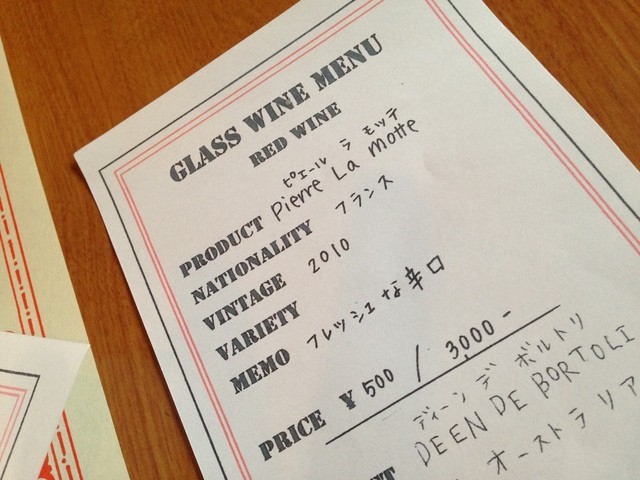 GLASS WINE MENU
RED WINE
ピエール ラ モッテ
PRODUCT Pierre La motte
NATIONALITY フランス
VINTAGE 2010
VARIETY
MEMO フレッシュな辛口
PRICE ¥500 / 3,000-
ディーン デ ボルトリ
DEEN DE BORTOLI
オーストラリア